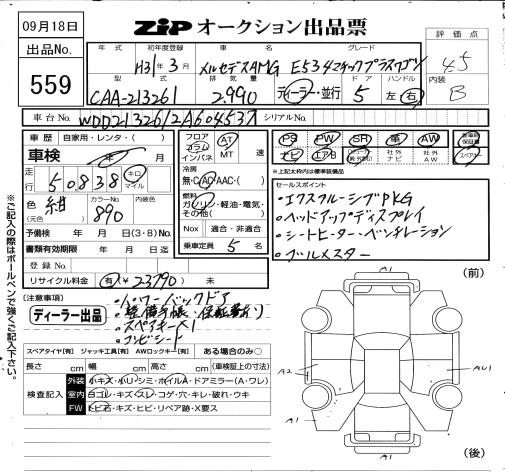 09月18日
ZiP オークション出品票
出品No.
559
年式 初年度登録 車名 グレード
H31年3月 メルセデスAMG E534マチックプラスワゴン
評価点
4.5
内装
B
型式 排気量 ドア ハンドル
CAA-213261 2.990 ディーラー・並行 5 左・右
車台No. WDD2132612A604537 シリアルNo.
車歴 自家用・レンタ・( )
車検 年 月
走行 50838 キロ マイル
色 (元色) 紺 カラーNo. 890 内装色
予備検 年 月 日(3・8)No.
書類有効期限 年 月 日迄
登録No.
リサイクル料金 有 ¥23790 未
フロア コラム インパネ
AT MT 速
冷房
無・CAC・AAC・( )
燃料
ガソリン・軽油・電気・その他( )
Nox 適合・非適合
乗車定員 5 名
PS PW SR 革 AW
ナビ エアB 社外ナビ 社外AW
保証書
スペアキー
※上記太枠内は標準装備品
セールスポイント
・エクスクルーシブPKG
・ヘッドアップディスプレイ
・シートヒーター・ベンチレーション
・ブルメスター
注意事項
ディーラー出品
・パワーバックドア
・整備手帳・保証書あり
・スペアキー×1
・コンビシート
スペアタイヤ[有] ジャッキ工具[有] AWロックキー[有] ある場合のみ○
長さ cm 幅 cm 高さ cm (車検証上の寸法)
検査記入
外装 小キズ・小リ・シミ・ホイルA・ドアミラー(A・ワレ)
室内 ヨゴレ・キズ・スレ・コゲ・穴・キレ・破れ・ウキ
FW トビ石・キズ・ヒビ・リペア跡・X要ス
※ご記入の際はボールペンで強くご記入下さい。
(前)
A1
A2
AU1
A1
A1
(後)